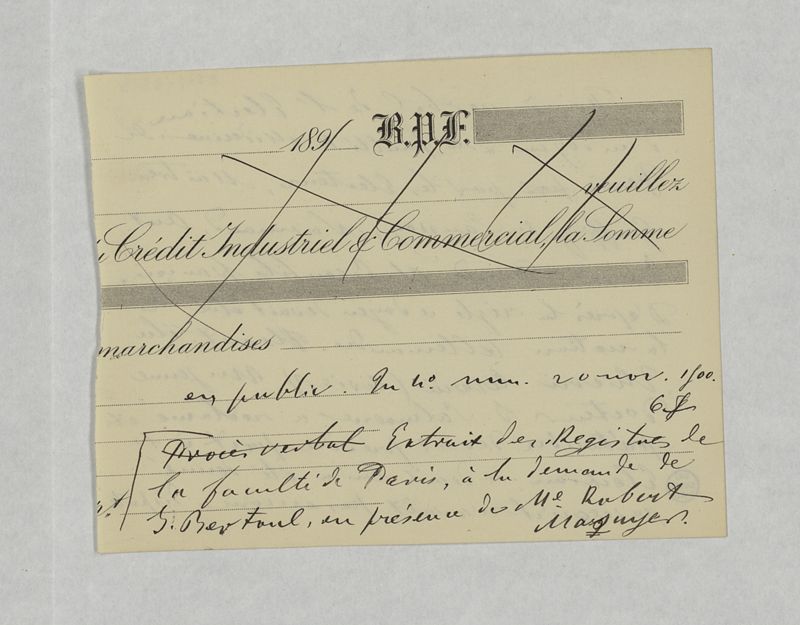 189
B.P.F.
veuillez
Crédit Industriel & Commercial, la Somme
marchandises
en public. In 4º. 20 nov. 1500.
6
Procès verbal Extrait des Registres de
la faculté de Paris, à la demande de
G. Bertoul, en présence de Me Robert